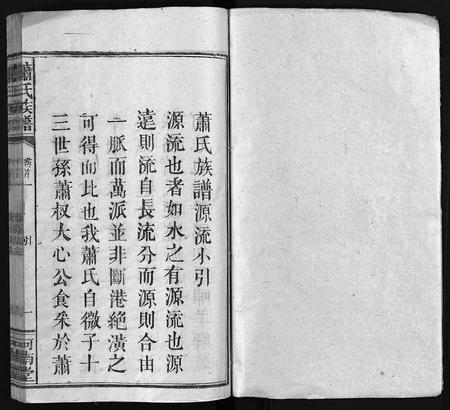 蕭氏族譜源流小引
源流也者如水之有源流也源
遠則流自長流分而源則合由
一脈而萬派並非斷港絶潢之
可得而比也我蕭氏自微子十
三世孫蕭叔大心公食采於蕭
蕭氏族譜
卷首
引
一
河南堂